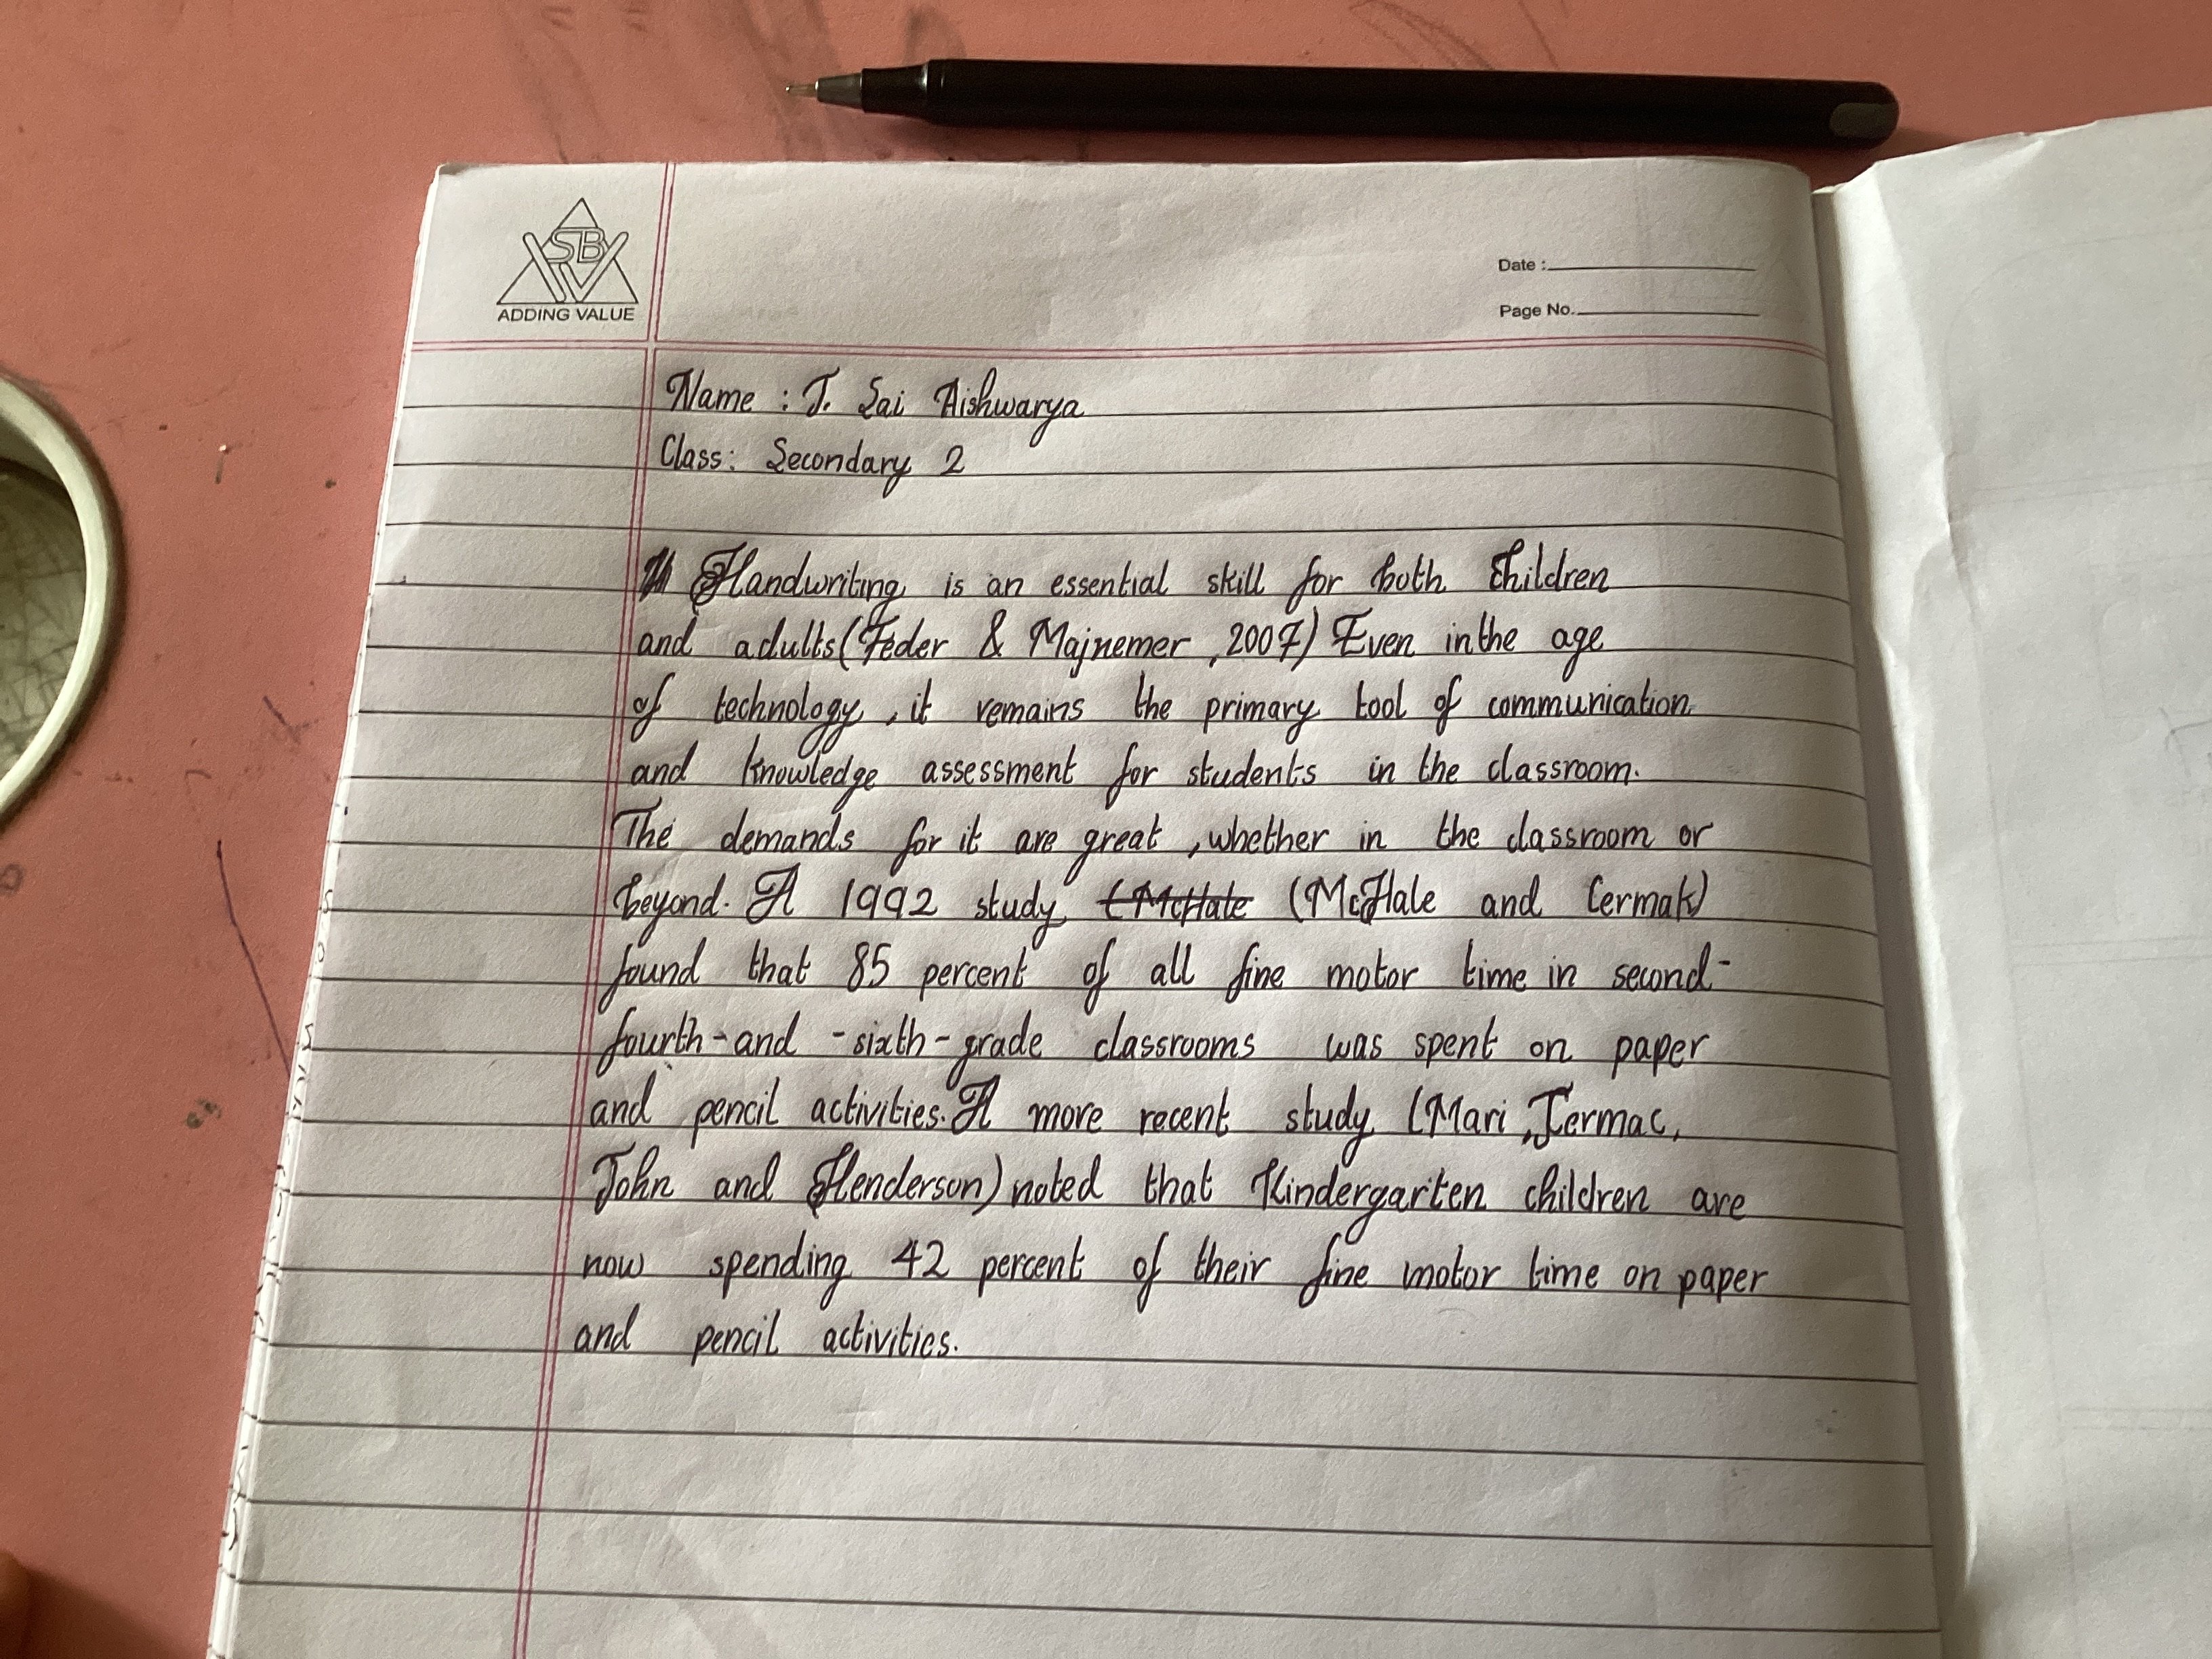 SBV
ADDING VALUE
Date :
Page No.
Name : T. Sai Aishwarya
Class: Secondary 2
Handwriting is an essential skill for both children
and adults(Feder & Majnemer ,2007) Even in the age
of technology , it remains the primary tool of communication
and knowledge assessment for students in the classroom.
The demands for it are great ,whether in the classroom or
beyond. A 1992 study (McHale (McHale and Cermak)
found that 85 percent of all fine motor time in second-
fourth-and -sixth-grade classrooms was spent on paper
and pencil activities. A more recent study (Mari ,Cermac,
John and Henderson) noted that Kindergarten children are
now spending 42 percent of their fine motor time on paper
and pencil activities.